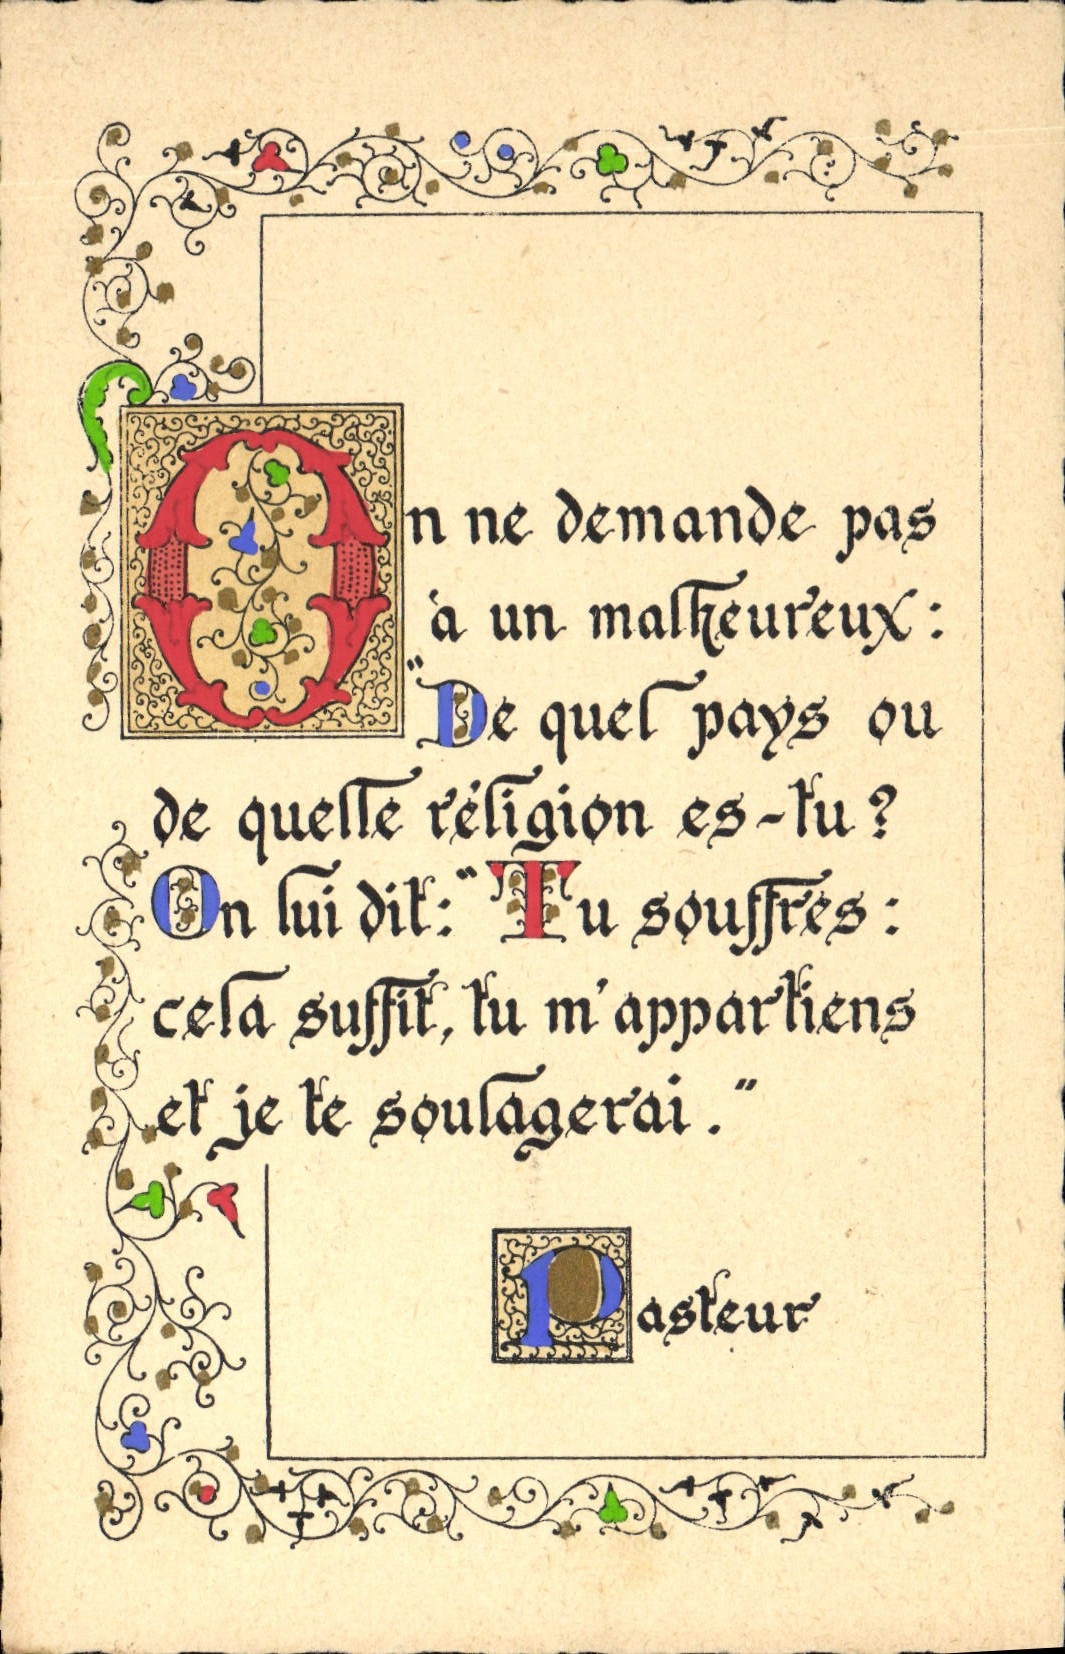 On ne demande pas
à un malheureux:
"De quel pays ou
de quelle réligion es-tu?
On lui dit: "Tu souffres:
cela suffit, tu m'appartiens
et je te soulagerai."
Pasteur